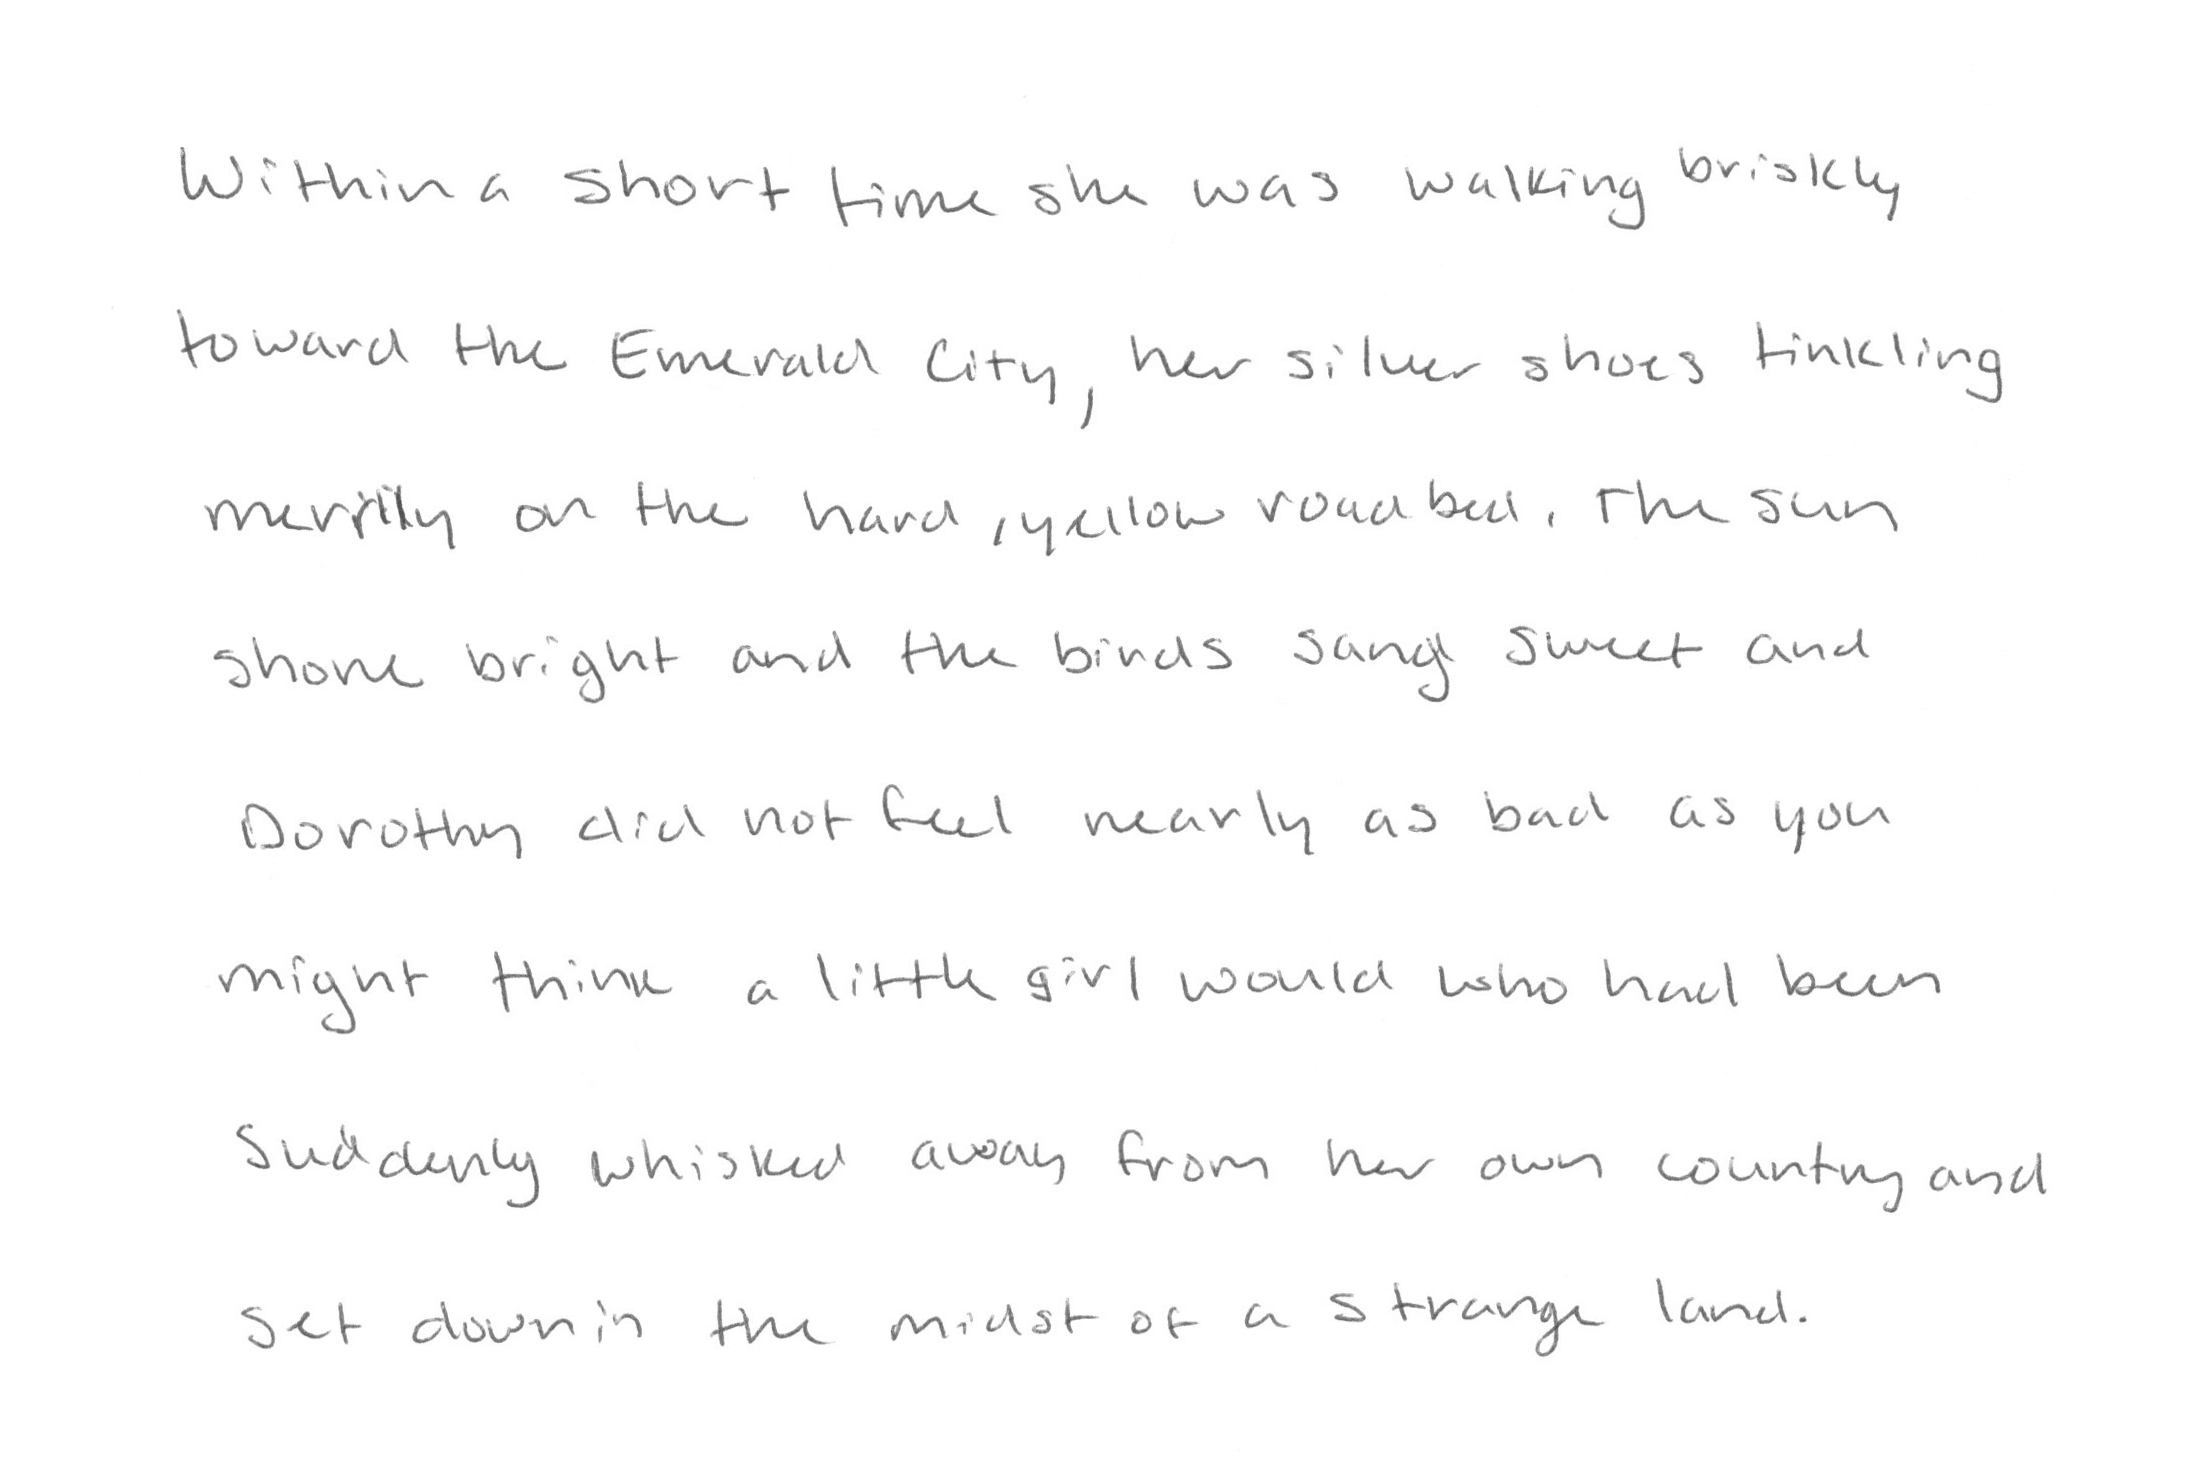 Within a short time she was walking briskly
toward the Emerald City, her silver shoes tinkling
merrily on the hard, yellow road bed. The sun
shone bright and the birds sang sweet and
Dorothy did not feel nearly as bad as you
might think a little girl would who had been
suddenly whisked away from her own country and
set down in the midst of a strange land.